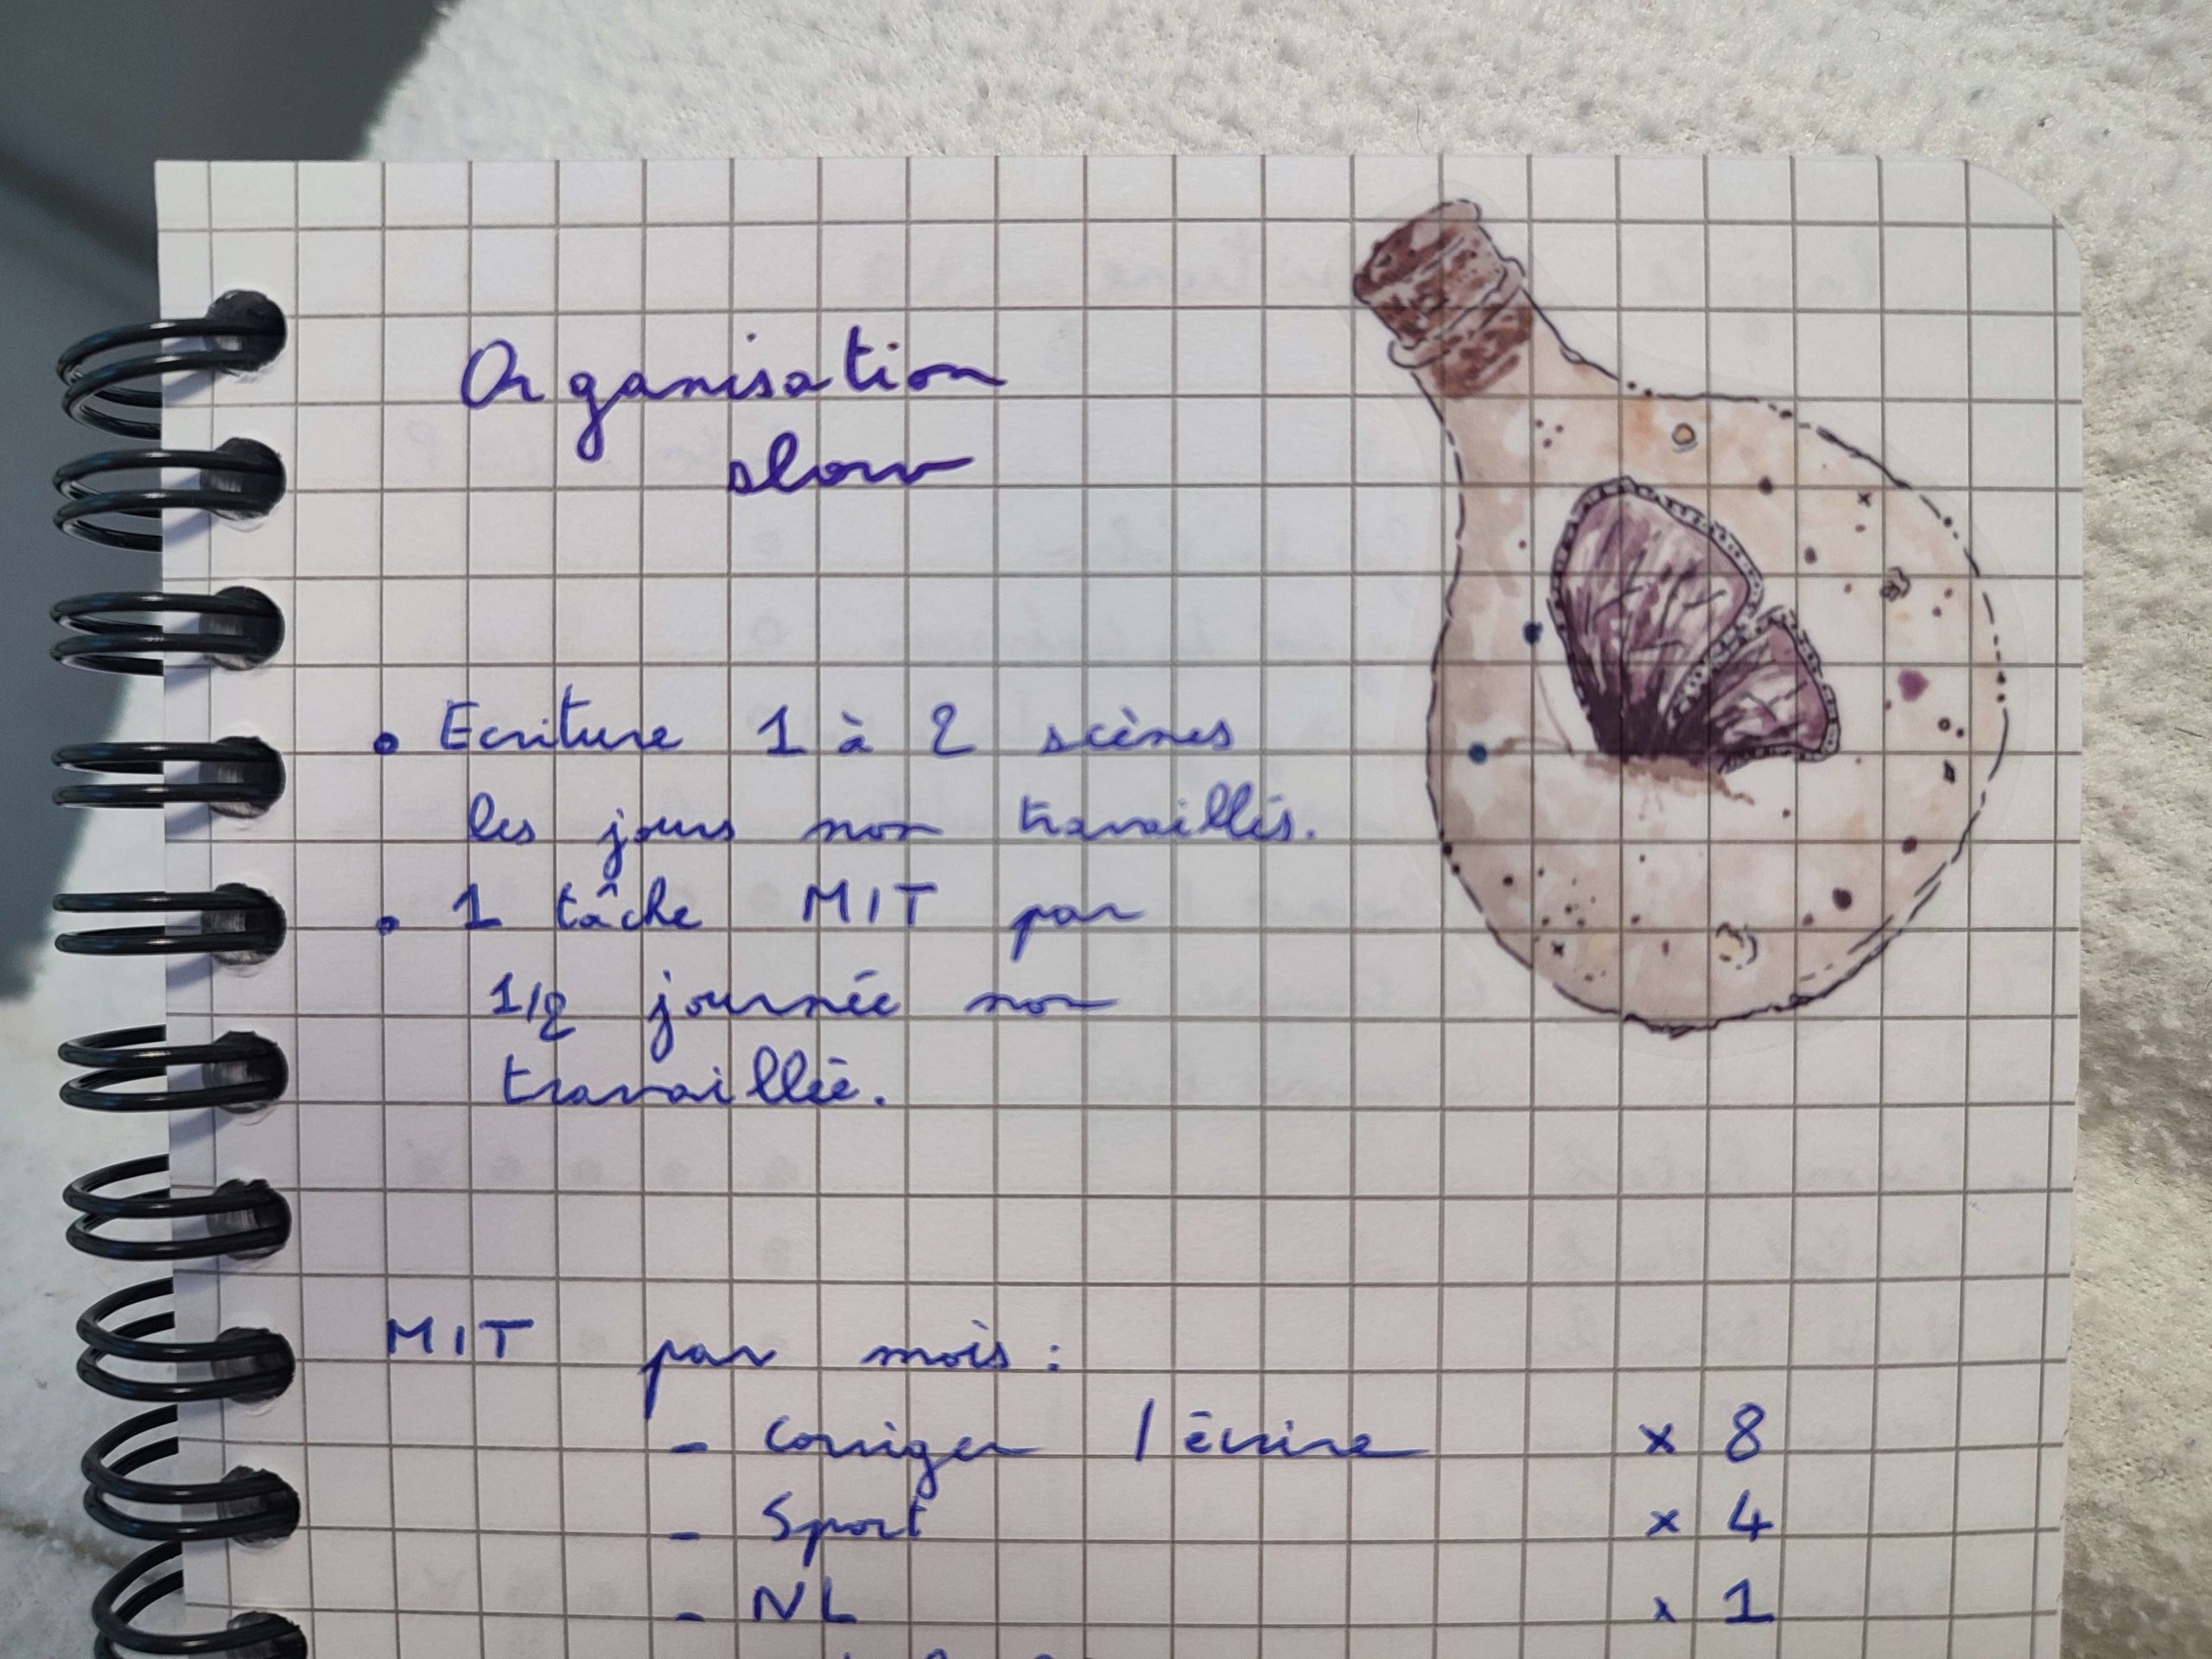 Organisation
slow
• Ecriture 1 à 2 scènes
les jours non travaillés.
• 1 tâche MIT par
1/2 journée non
travaillée.
MIT par mois :
- Corriger / écrire x 8
- Sport x 4
- NL x 1